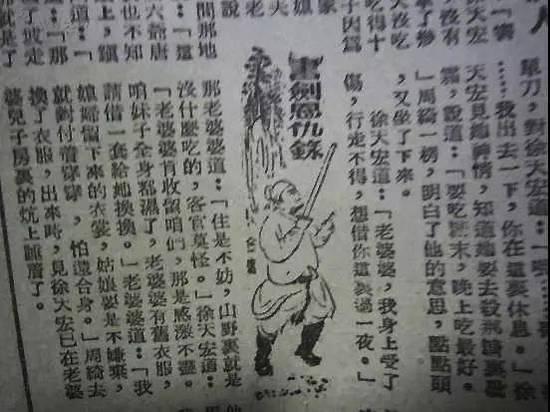 徐大宏
，沒有
吃得十
子因為
單刀，對徐大宏道：「
……我出去一下，你在這裏休息。」徐
天宏見她神情，知道她要去殺那糖裏
霜，說道：「要吃糖末，晚上吃最好。
」周綺一楞，明白了他的意思，點點頭
，又坐了下來。
徐大宏道：「老婆婆，我身上受了
傷，行走不得，想借你這裏過一夜。」
書劍恩仇錄
間那地
六爺唐
也不知
上，躓
道：「那
那就是了
那老婆婆道：「住是不妨，山野裏就是
沒什麼吃的，客官莫怪。」徐大宏道：
「老婆婆肯收留咱們，那是感激不盡。
咱妹子全身都濕了，老婆婆有舊衣服，
請借一套給她換換。」老婆婆道：「我
媳婦留下來的衣裳，姑娘要是不嫌棄，
就對付着穿穿，怕還合身。」周綺去
換了衣服，出來時，見徐大宏已在老婆
婆兒子房裏的炕上睡着了。